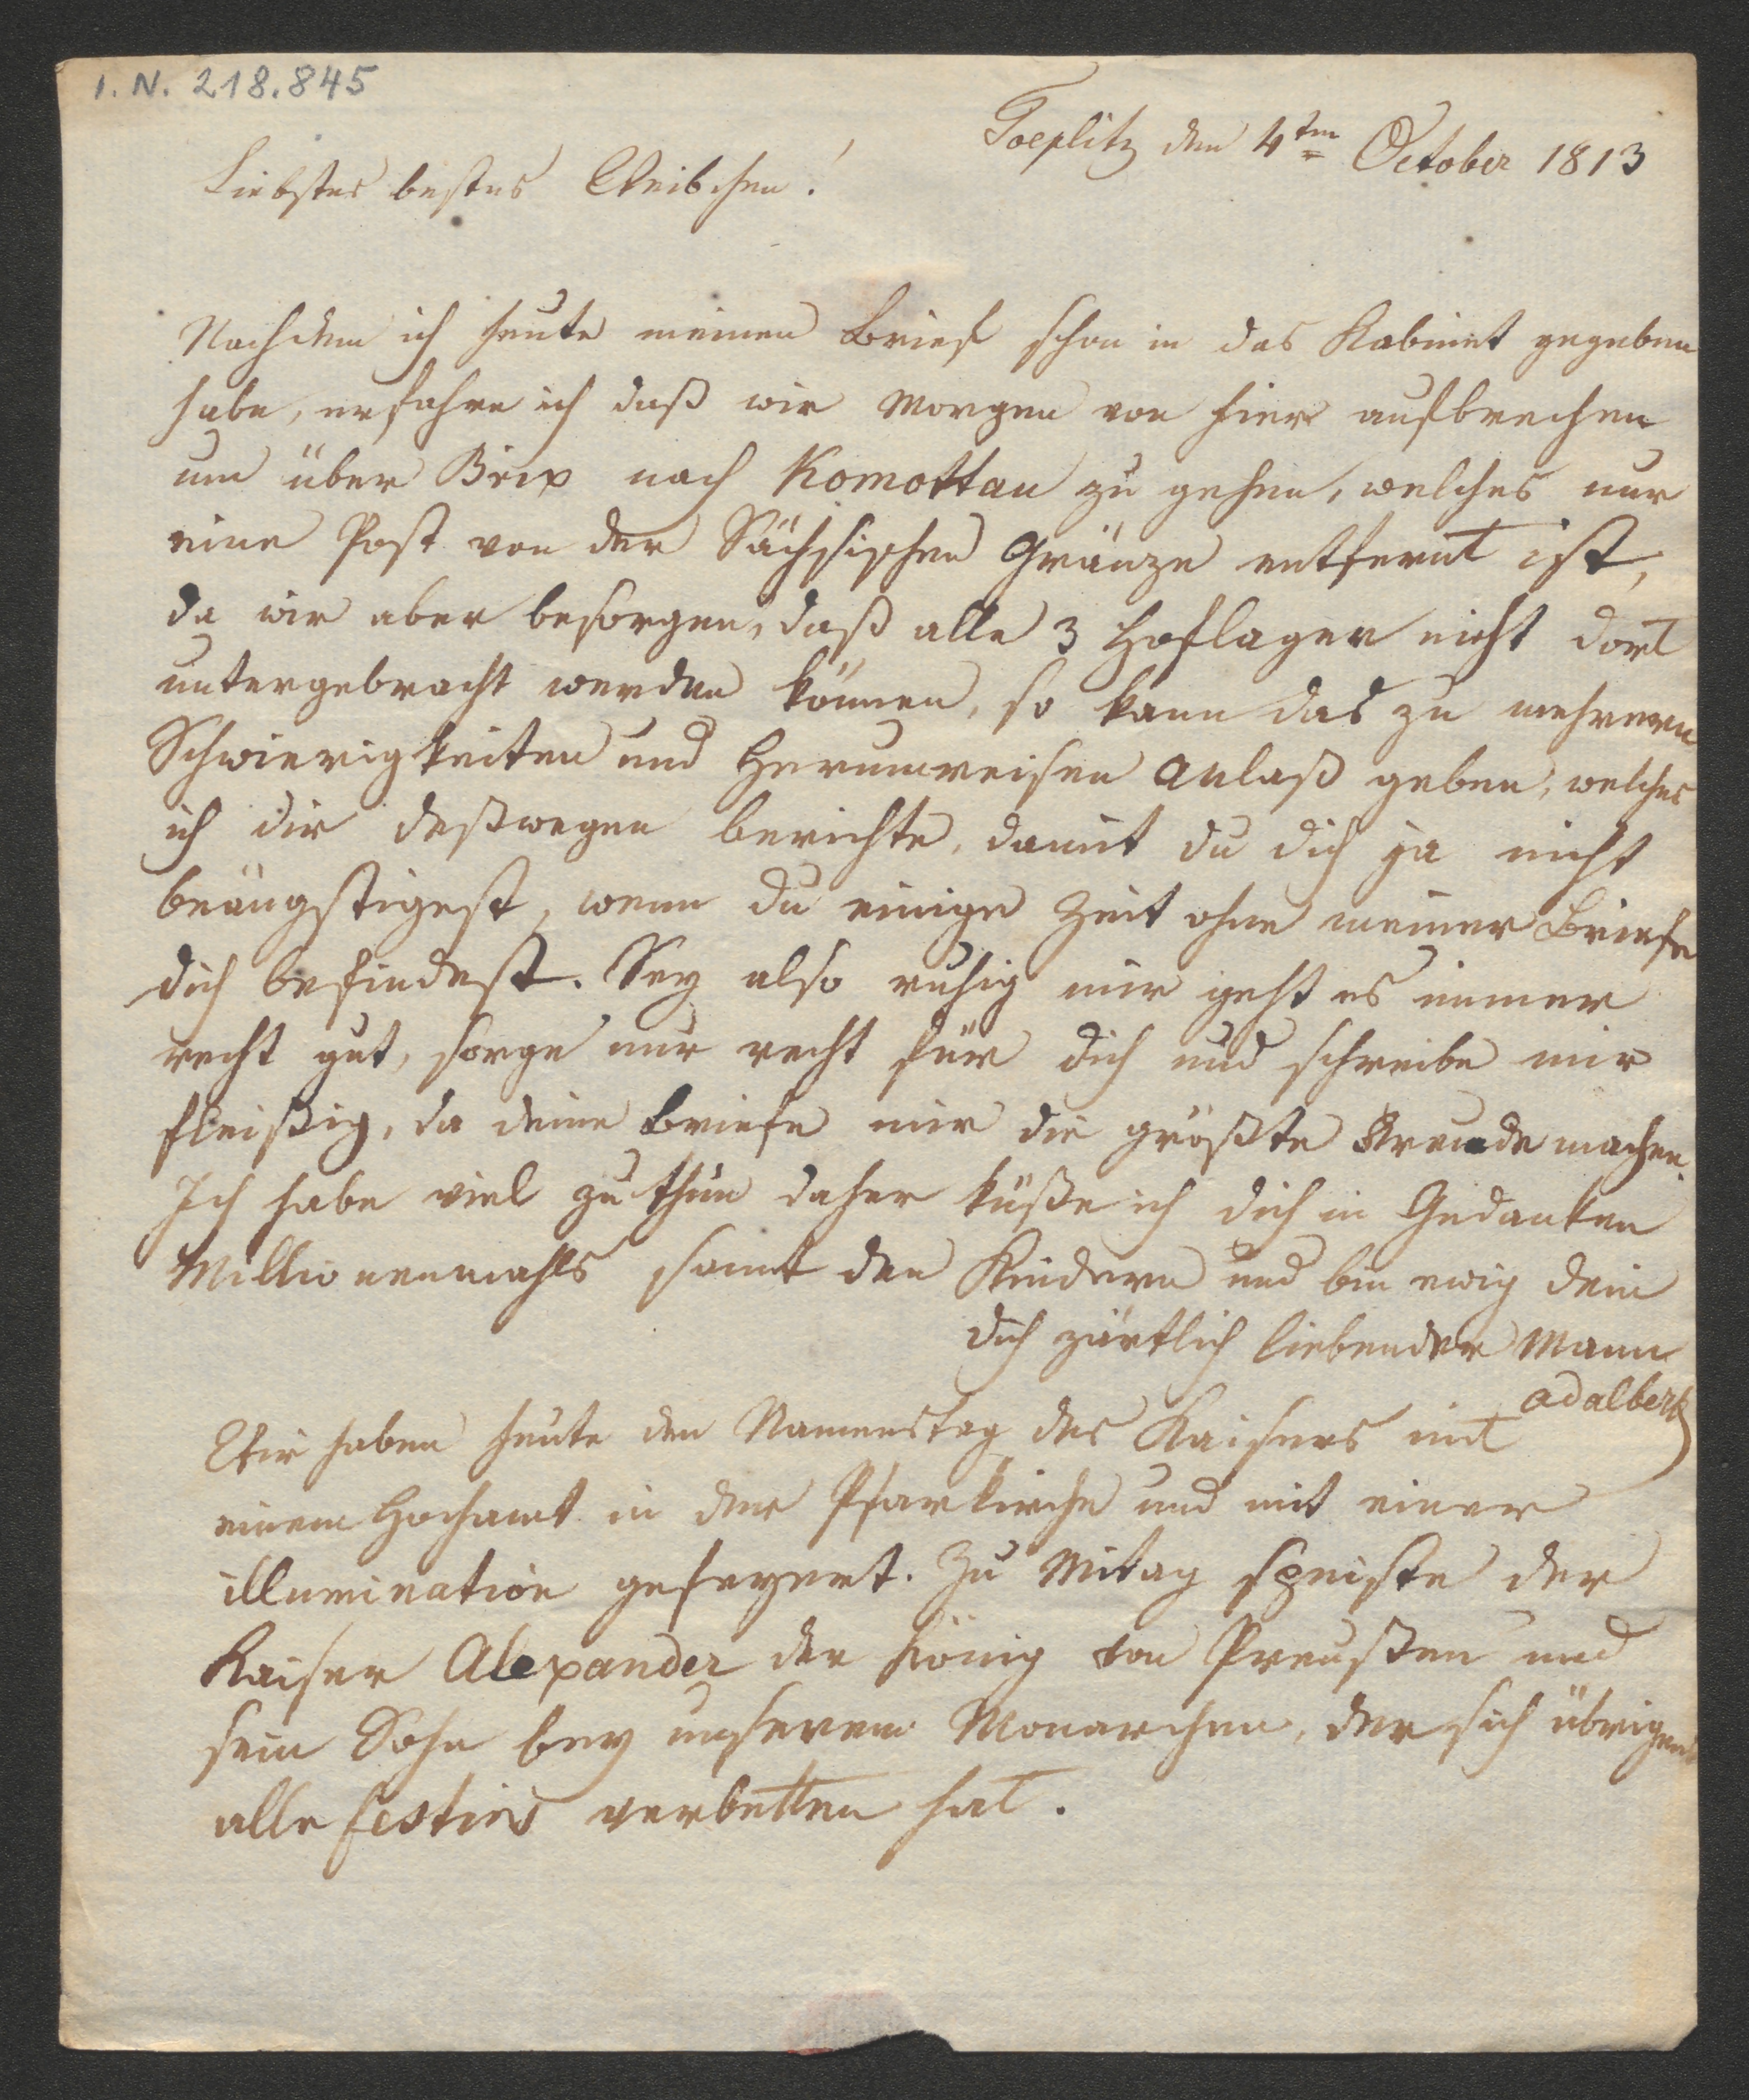 I. N. 218.845
Toeplitz den 4ten October 1813
Liebstes bestes Weibchen!
Nachdem ich heute meinen Brief schon in das Kabinet gegeben
habe, erfahre ich daß wir Morgen von hier aufbrechen
um über Brix nach Komottau zu gehen, welches nur
eine Post von der Sächsischen Gränze entfernt ist,
da wir aber besorgen, daß alle 3 Hoflager nicht dort
untergebracht werden können, so kann das zu mehrern
Schwierigkeiten und Herumreisen Anlaß geben, welches
ich dir deßwegen berichte, damit du dich ja nicht
beängstigest, wenn du einige Zeit ohne meiner Briefe
dich befindest. Sey also ruhig mir geht es immer
recht gut, sorge nur recht für dich und schreibe mir
fleißig, da deine Briefe mir die größte Freude machen.
Ich habe viel zu thun daher küße ich dich in Gedanken
Millionenmahls samt den Kindern und bin ewig dein
dich zärtlich liebender Mann
Adalbert
Wir haben heute den Namenstag des Kaisers mit
einem Hochamt in der Pfarkirche und mit einer
illumination gefeyert. Zu Mitag speiste der
Kaiser Alexander der König von Preußen und
sein Sohn bey unserem Monarchen, der sich übrigens
alle festins verbetten hat.